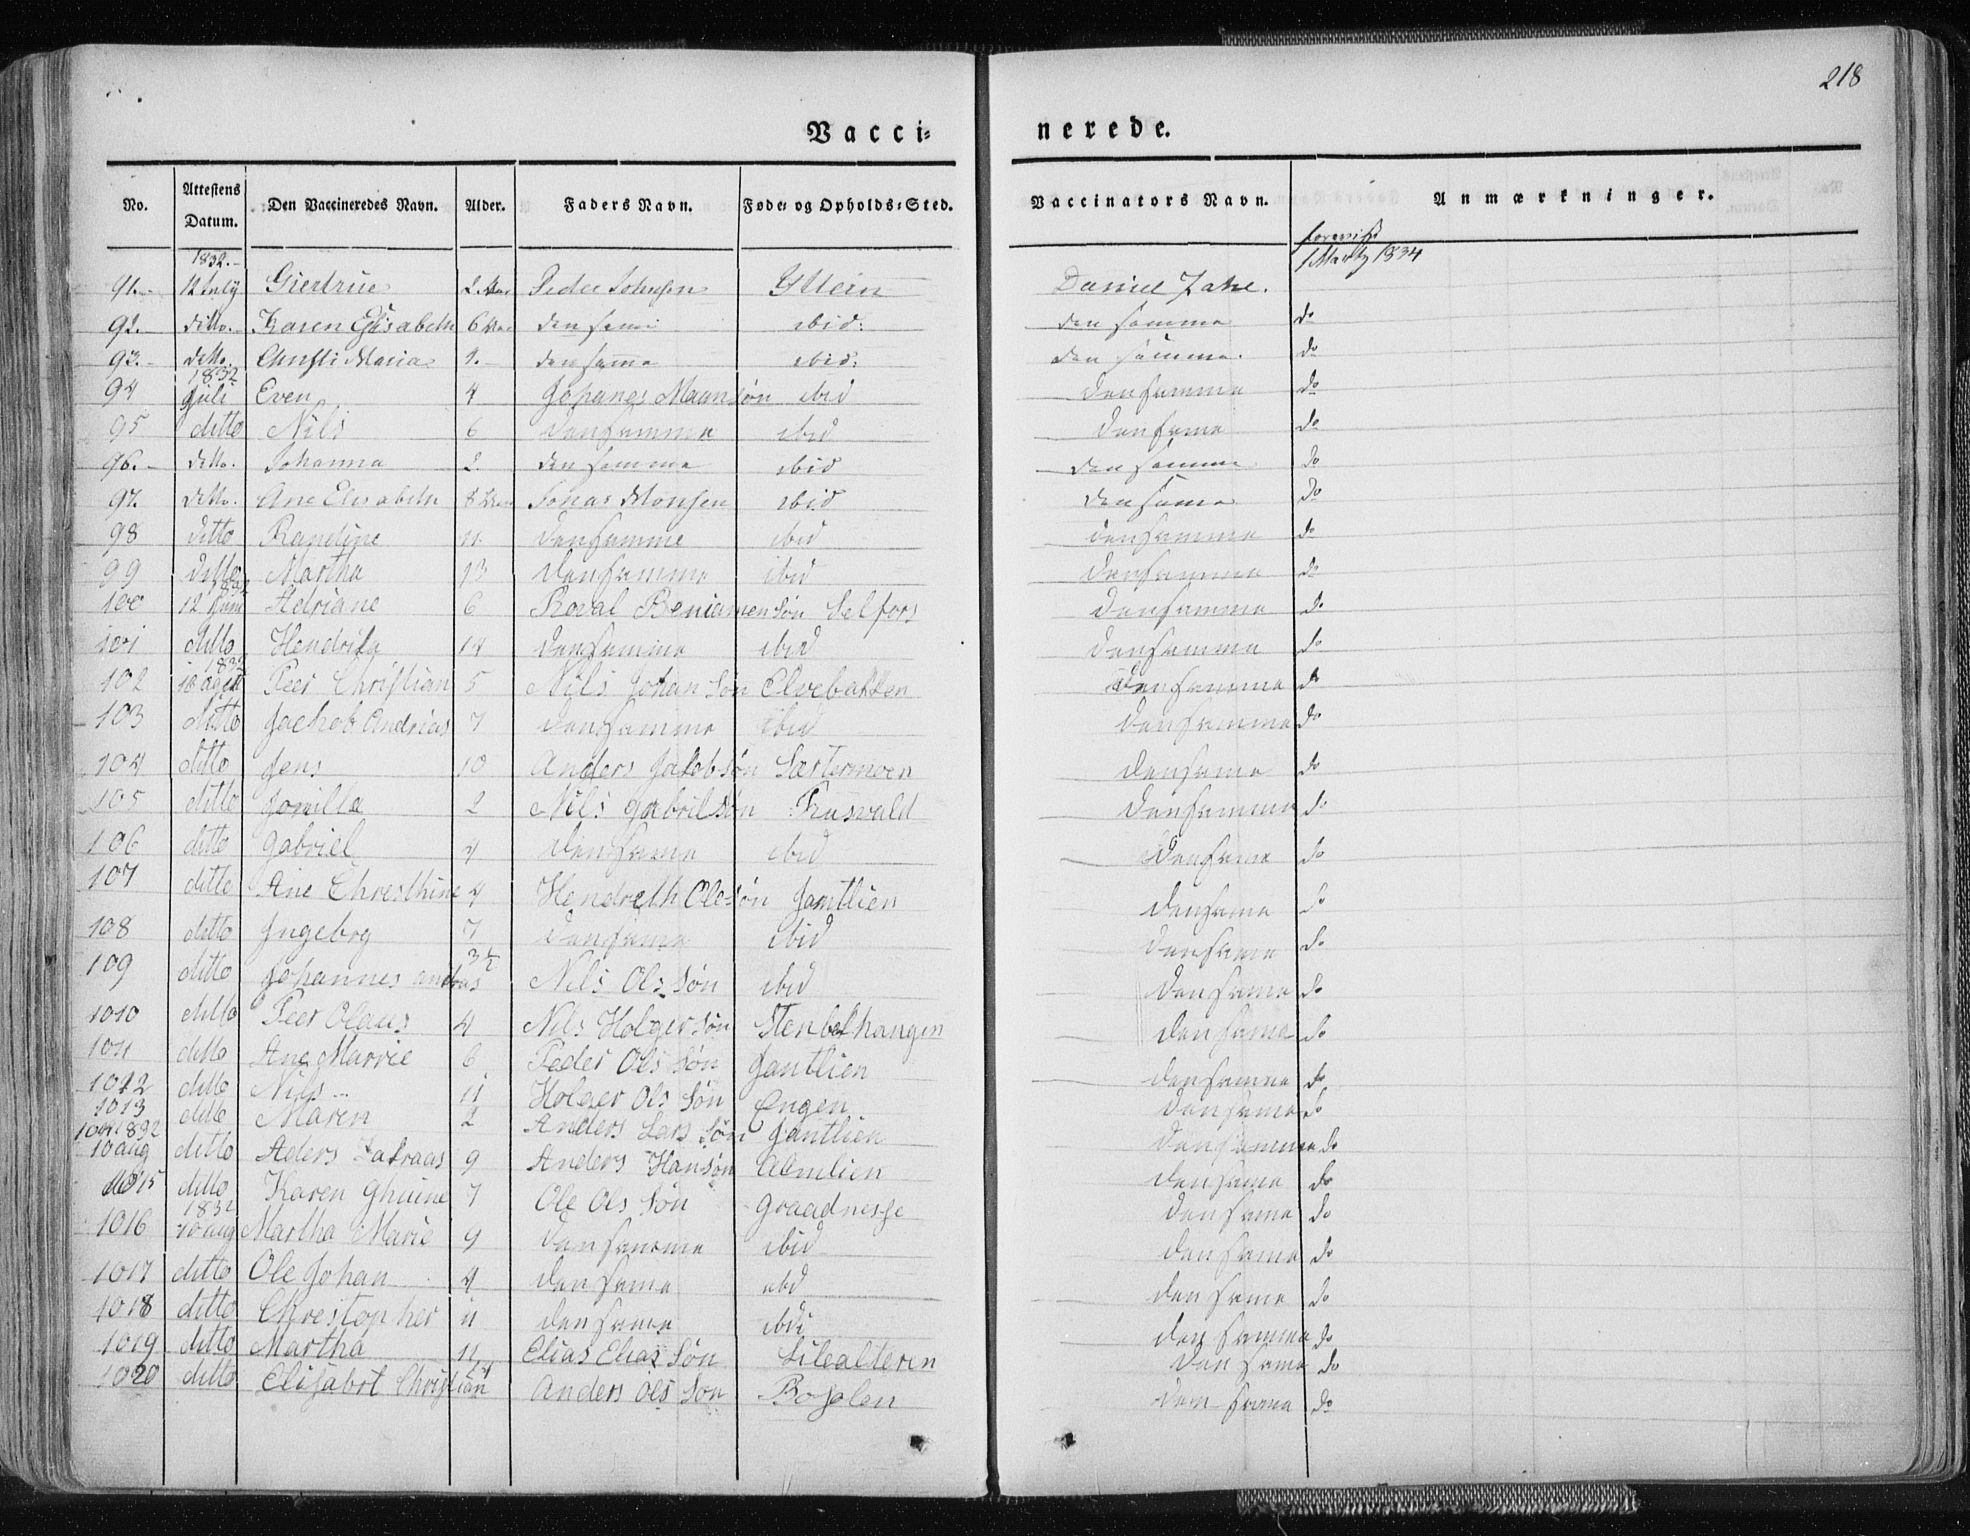 218
Vacci=
nerede.
No. Attestens Datum. Den Vaccineredes Navn. Alder. Faders Navn. Føde= og Opholds=Sted. Vaccinators Navn. Anmærkninger.
1832.- forevist 1 Martz 1834
91.- 12 July Giertrue 2 Peder Johnsen Yttern Daniel Zahl.
92. ditto.- Karen Elisabeth 6 den same ibid: den samme do
93.- ditto. Christi Maria 1.- den same ibid: den samme. do
1832
94 Juli Even 4 Johanes Maansøn ibid den samme do
95 ditto Nils 6 den samme ibid den same do
96.- ditto. Johanna 2. den samme ibid den samme Do
97. ditto. Ane Elisabeth 8 Jonas Monsen ibid den same Do
98 ditto Randine 11 den samme ibid den samme do
99 ditto Martha 13 den samme ibid den samme do
1832
100 12 Juni Adriane 6 Roval Beniamensøn Selfors den samme do
101 ditto Hendrika 14 den samme ibid den samme do
1832
102 10 Agst Peer Christian 5 Nils Johansøn Elvebakken den samme do
103 ditto Jachob Andrias 7 den samme ibid den samme do
104 ditto Jens 10 Anders Jakobsøn Sætermoen den same do
105 ditto Jonilla 2 Nils Gabrilsøn Rusvald den samme do
106 ditto Gabriel 4 den same ibid den same do
107 ditto Ane Chresthine 4 Hendreth Olesøn Jamtlien den same do
108 ditto Ingebog 7 den same ibid den same do
109 ditto Johannes andras 3½ Nils Olssøn ibid den same do
1010 ditto Peer Olaus 4 Nils Holgersøn Stenbelhangen den same do
1011 ditto Ane Marrie 6 Peder Olssøn Jamtlien den same do
1012 ditto Nils 11 Holger Olssøn Engen den same do
1013 ditto Maren 2 Anders Larssøn Jamtlien den samme do
1014 1832
10 aug ditto Aders Zakraas 9 Anders Hansøn Almlien den same do
1015 ditto Karen Ghuine 7 Ole Olssøn Graadnesse den same do
1832
1016 10 aug Martha Marie 9 den samme ibid den same do
1017 ditto Ole Johan 4 den same ibid den same do
1018 ditto Chrestopher 11 den same ibid den samme do
1019 ditto Martha 11 Elias Eliassøn Silealteren den same do
1020 ditto Elisabet Christian 14 Anders Olsson Bosolen den same do